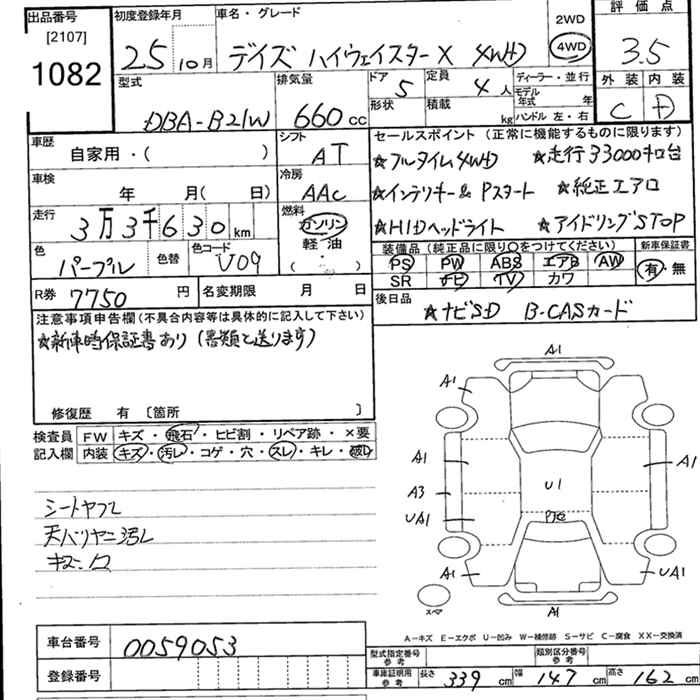 出品番号
[2107]
1082
初度登録年月
25 10月
車名・グレード
デイズ ハイウェイスターX 4WD
2WD
4WD
評価点
3.5
外装 内装
C D
型式
DBA-B21W
排気量
660cc
ドア 5
定員 4人
形状
積載 kg
ディーラー・並行
モデル年式 年
ハンドル 左・右
車歴
自家用・( )
シフト
AT
車検
年 月( 日)
冷房
AAC
走行
3万3千630km
燃料
ガソリン
軽油
( ・ )
色
パープル
色替
色コード
V09
R券 7750円
名変期限 月 日
セールスポイント(正常に機能するものに限ります)
★フルタイム4WD ★走行33000キロ台
★インテリキー& Pスタート ★純正エアロ
★HIDヘッドライト ★アイドリングSTOP
装備品(純正品に限り○をつけてください)
PS PW ABS エアB AW
SR ナビ TV カワ
新車保証書
有・無
後日品
★ナビSD B-CASカード
注意事項申告欄(不具合内容等は具体的に記入して下さい)
★新車時保証書あり(書類と送ります)
修復歴 有 〔箇所 〕
検査員記入欄
FW キズ・飛石・ヒビ割・リペア跡・×要
内装 キズ・汚レ・コゲ・穴・スレ・キレ・破レ
シートヤブレ
天バリヤニ汚レ
キズ、穴
A1
A1
A1
A1
A3
U1
UA1
A1
UA1
A1
スペア
A-キズ E-エクボ U-凹み W-補修跡 S-サビ C-腐食 XX-交換済
車台番号 0059053
登録番号
型式指定番号 参考
類別区分番号 参考
車庫証明用 参考 長さ 339cm 幅 147cm 高さ 162cm